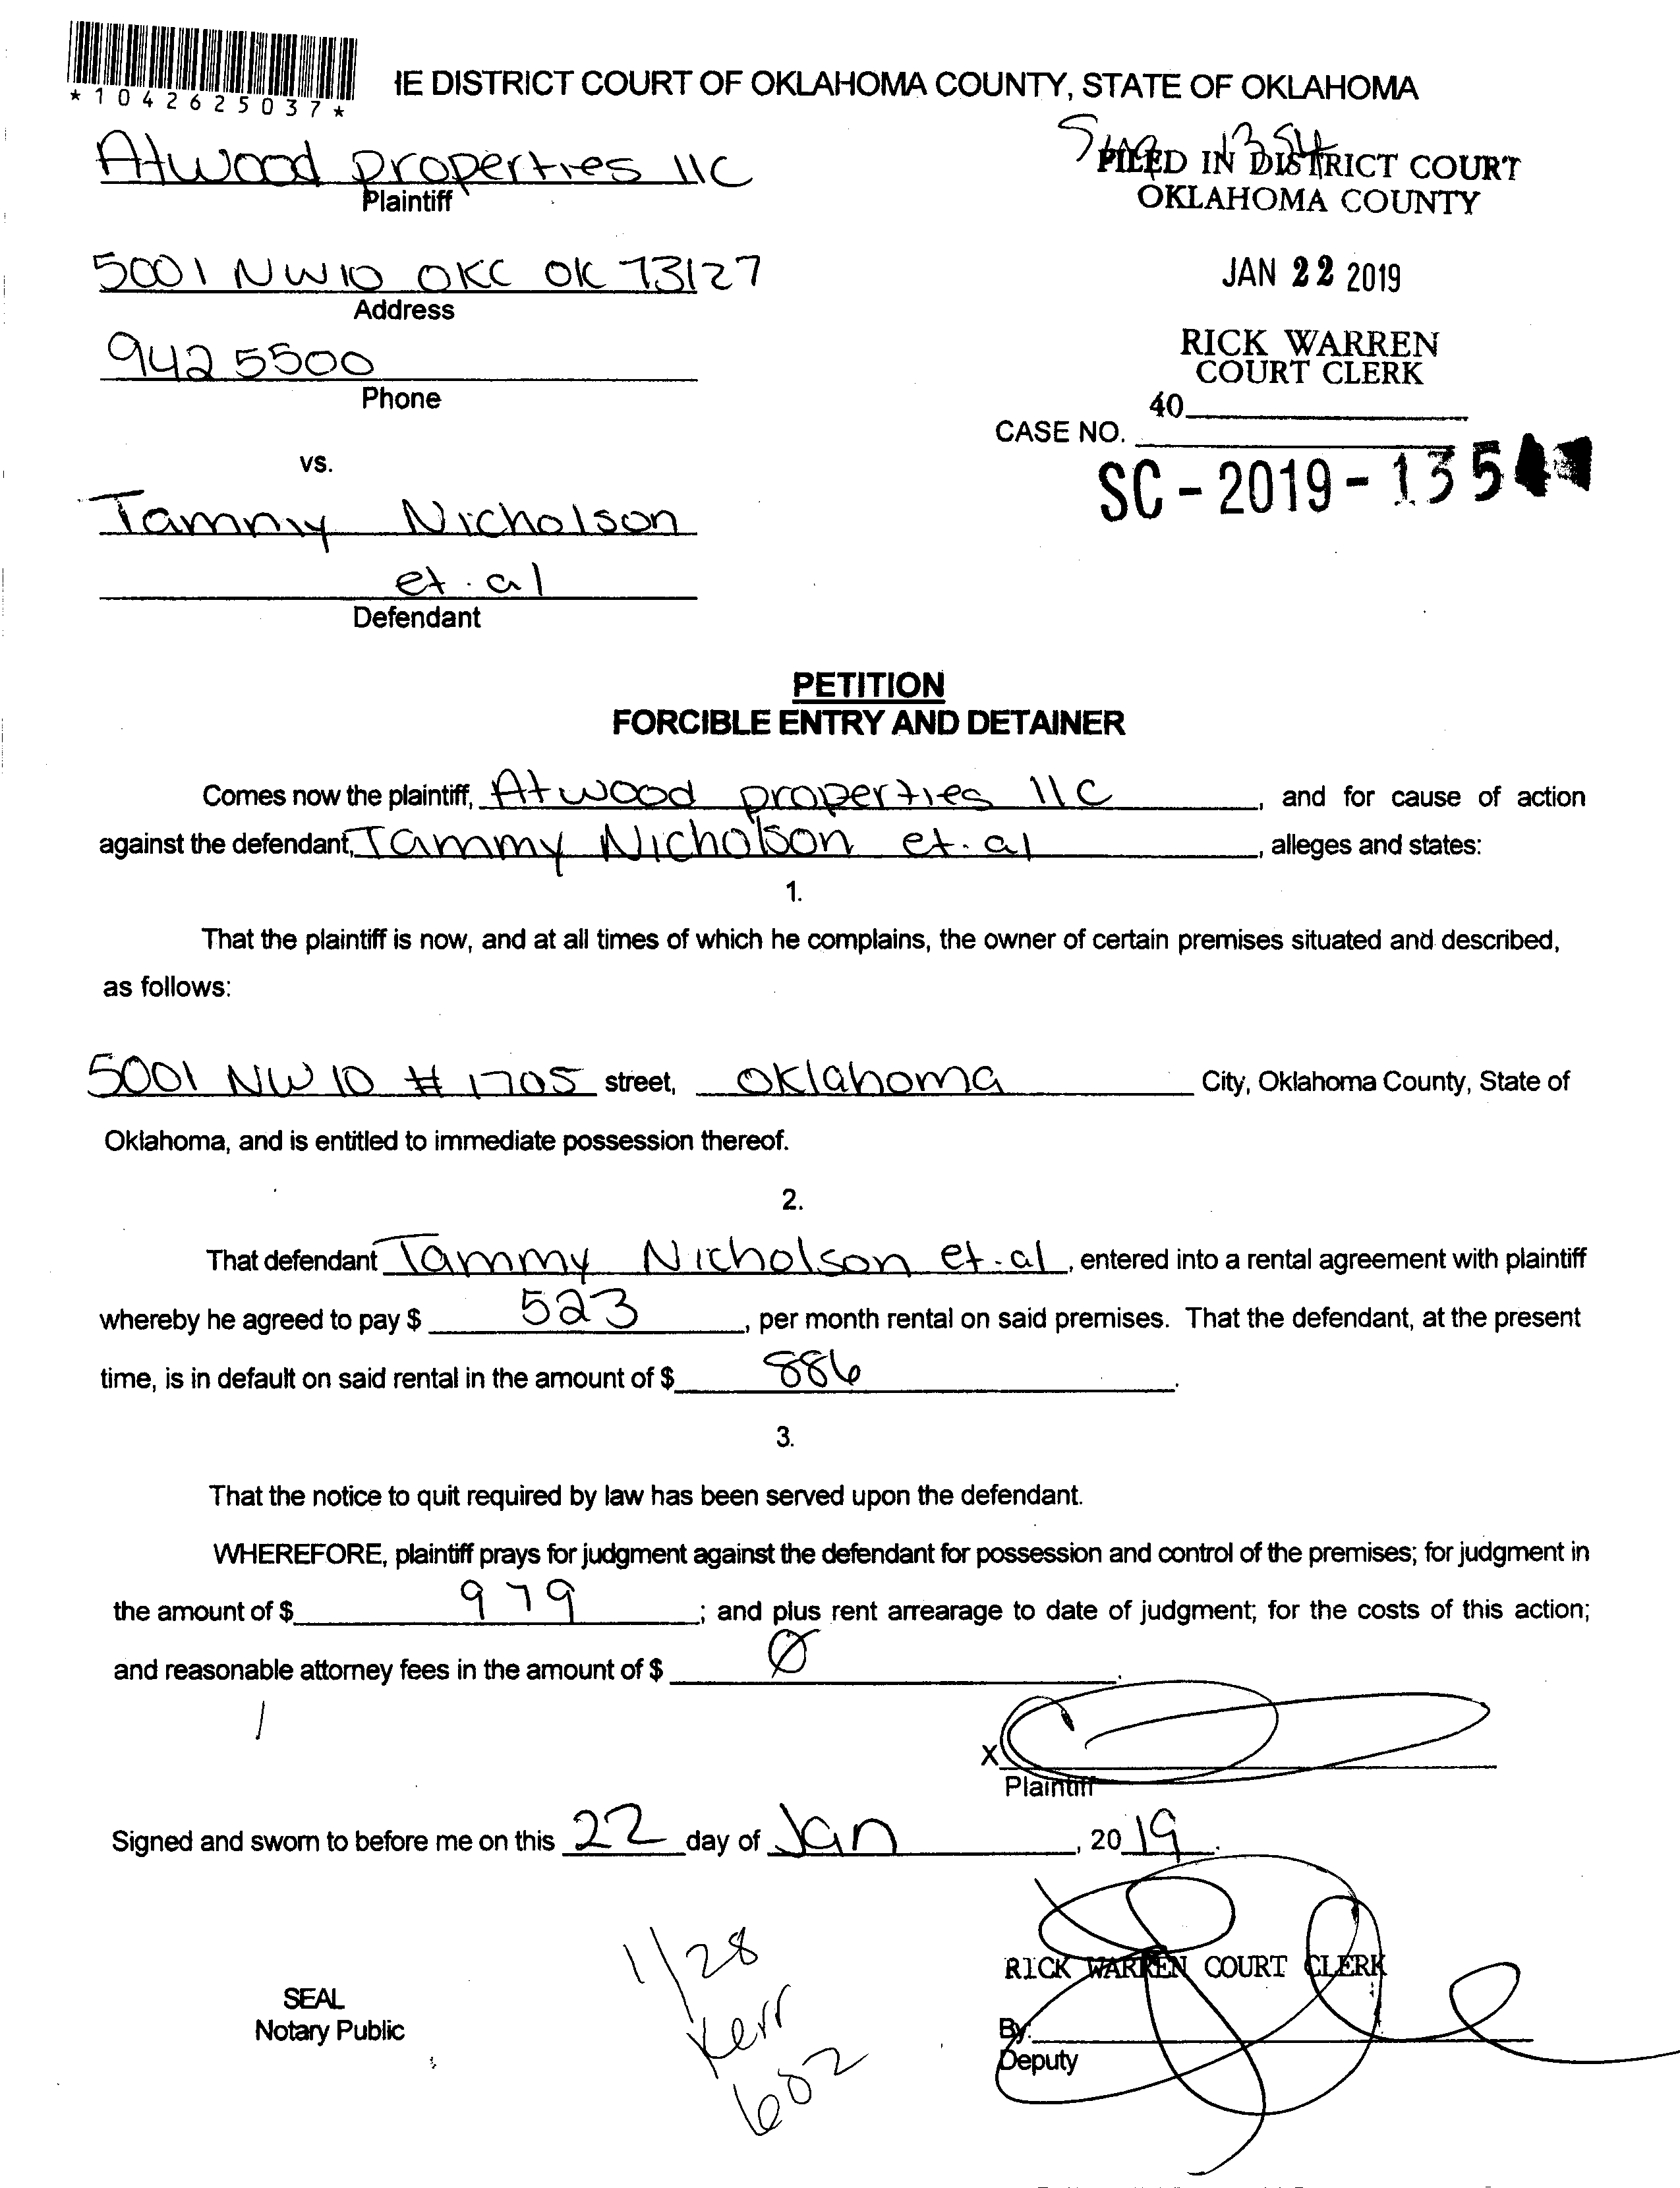 *1042625037*
IE DISTRICT COURT OF OKLAHOMA COUNTY, STATE OF OKLAHOMA
Atwood properties llc
Plaintiff
FILED IN DISTRICT COURT
OKLAHOMA COUNTY
5001 NW 10 OKC OK 73127
Address
JAN 22 2019
942 5500
Phone
RICK WARREN
COURT CLERK
40
CASE NO.
SC - 2019 - 135
vs.
Tammy Nicholson
et. al
Defendant
PETITION
FORCIBLE ENTRY AND DETAINER
Comes now the plaintiff, Atwood properties llc, and for cause of action
against the defendant, Tammy Nicholson et. al, alleges and states:
1.
That the plaintiff is now, and at all times of which he complains, the owner of certain premises situated and described,
as follows:
5001 NW 10 # 1705 street, Oklahoma City, Oklahoma County, State of
Oklahoma, and is entitled to immediate possession thereof.
2.
That defendant Tammy Nicholson et. al, entered into a rental agreement with plaintiff
whereby he agreed to pay $ 523, per month rental on said premises. That the defendant, at the present
time, is in default on said rental in the amount of $ 886.
3.
That the notice to quit required by law has been served upon the defendant.
WHEREFORE, plaintiff prays for judgment against the defendant for possession and control of the premises; for judgment in
the amount of $ 979; and plus rent arrearage to date of judgment; for the costs of this action;
and reasonable attorney fees in the amount of $ Ø.
X
Plaintiff
Signed and sworn to before me on this 22 day of Jan, 2019.
1/28
Kerr
602
RICK WARREN COURT CLERK
SEAL
Notary Public
By:
Deputy